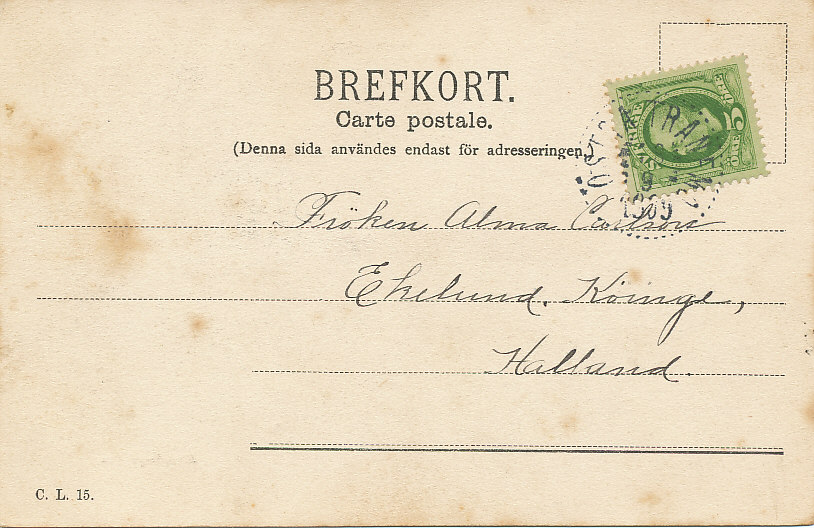 BREFKORT.
Carte postale.
(Denna sida användes endast för adresseringen
5
ÖSTRA
9
1909
Fröken Alma Carlsson
Ekelund. Köinge,
Halland.
C. L. 15.